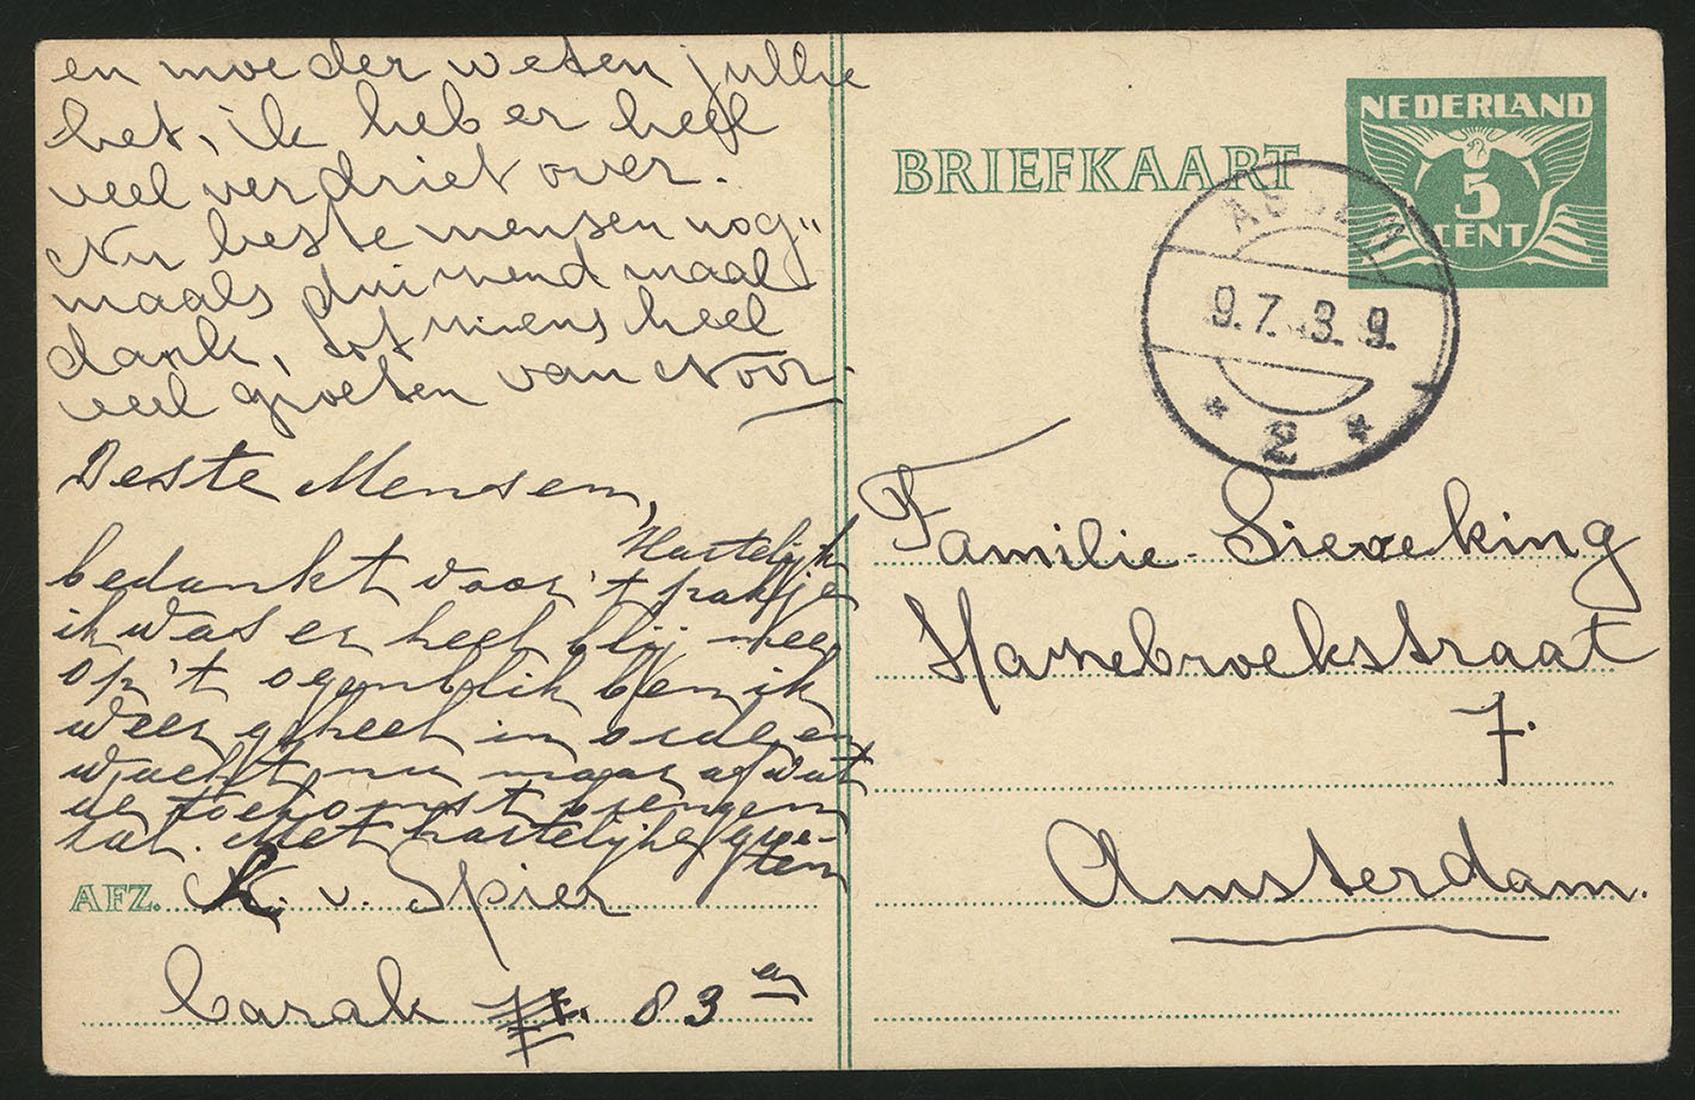 en moeder weten jullie
het, ik heb er heel
veel verdriet over.
Nu beste mensen nog"
maals duizend maal
dank, tot ziens heel
veel groeten van Noor.
Beste Mensen,
Hartelijk
bedankt voor 't pakje
ik was er heel blij mee
op 't ogenblik ben ik
weer geheel in orde en
wacht nu maar af wat
de toekomst brengen
zal. Met hartelijke groe-
ten
AFZ. K. v. Spier
Barak 83 a
BRIEFKAART
NEDERLAND
5
CENT
ASSEN
9.7.
2
Familie Sieveking
Hasebroekstraat
7.
Amsterdam.